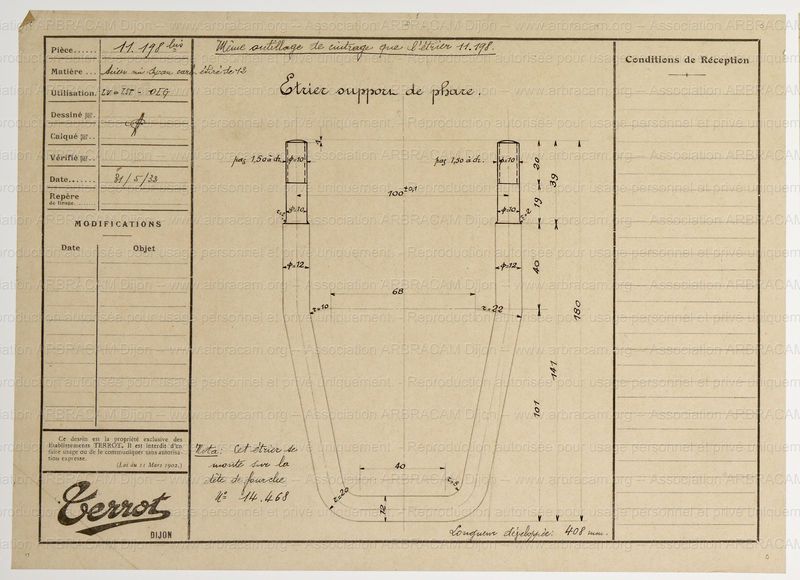 Pièce...... 11.198 bis
Matière ...
étiré de 12
Utilisation.
Dessiné par.
Calqué par..
Vérifié par..
Date....... 31/5/33
Repère
de liasse.
MODIFICATIONS
Date Objet
Ce dessin est la propriété exclusive des
Etablissements TERROT. Il est interdit d'en
faire usage ou de le communiquer sans autorisa-
tion expresse.
(Loi du 11 Mars 1902.)
Terrot
DIJON
Même outillage de cintrage que l'étrier 11.198.
Etrier support de phare.
pas 1,50 à dr. φ=10
pas 1,50 à dr. φ=10
20
39
100±0,1
19
φ=10
φ=10
r=2
φ=12
φ=12
40
68
r=10
r=22
180
141
101
40
r=20
r=8
12
Nota: Cet étrier se
monte sur la
tête de fourche
N° 14.468
Longueur développée: 408 mm.
Conditions de Réception
Association ARBRACAM Dijon – www.arbracam.org
Reproduction autorisée pour usage personnel et privé uniquement